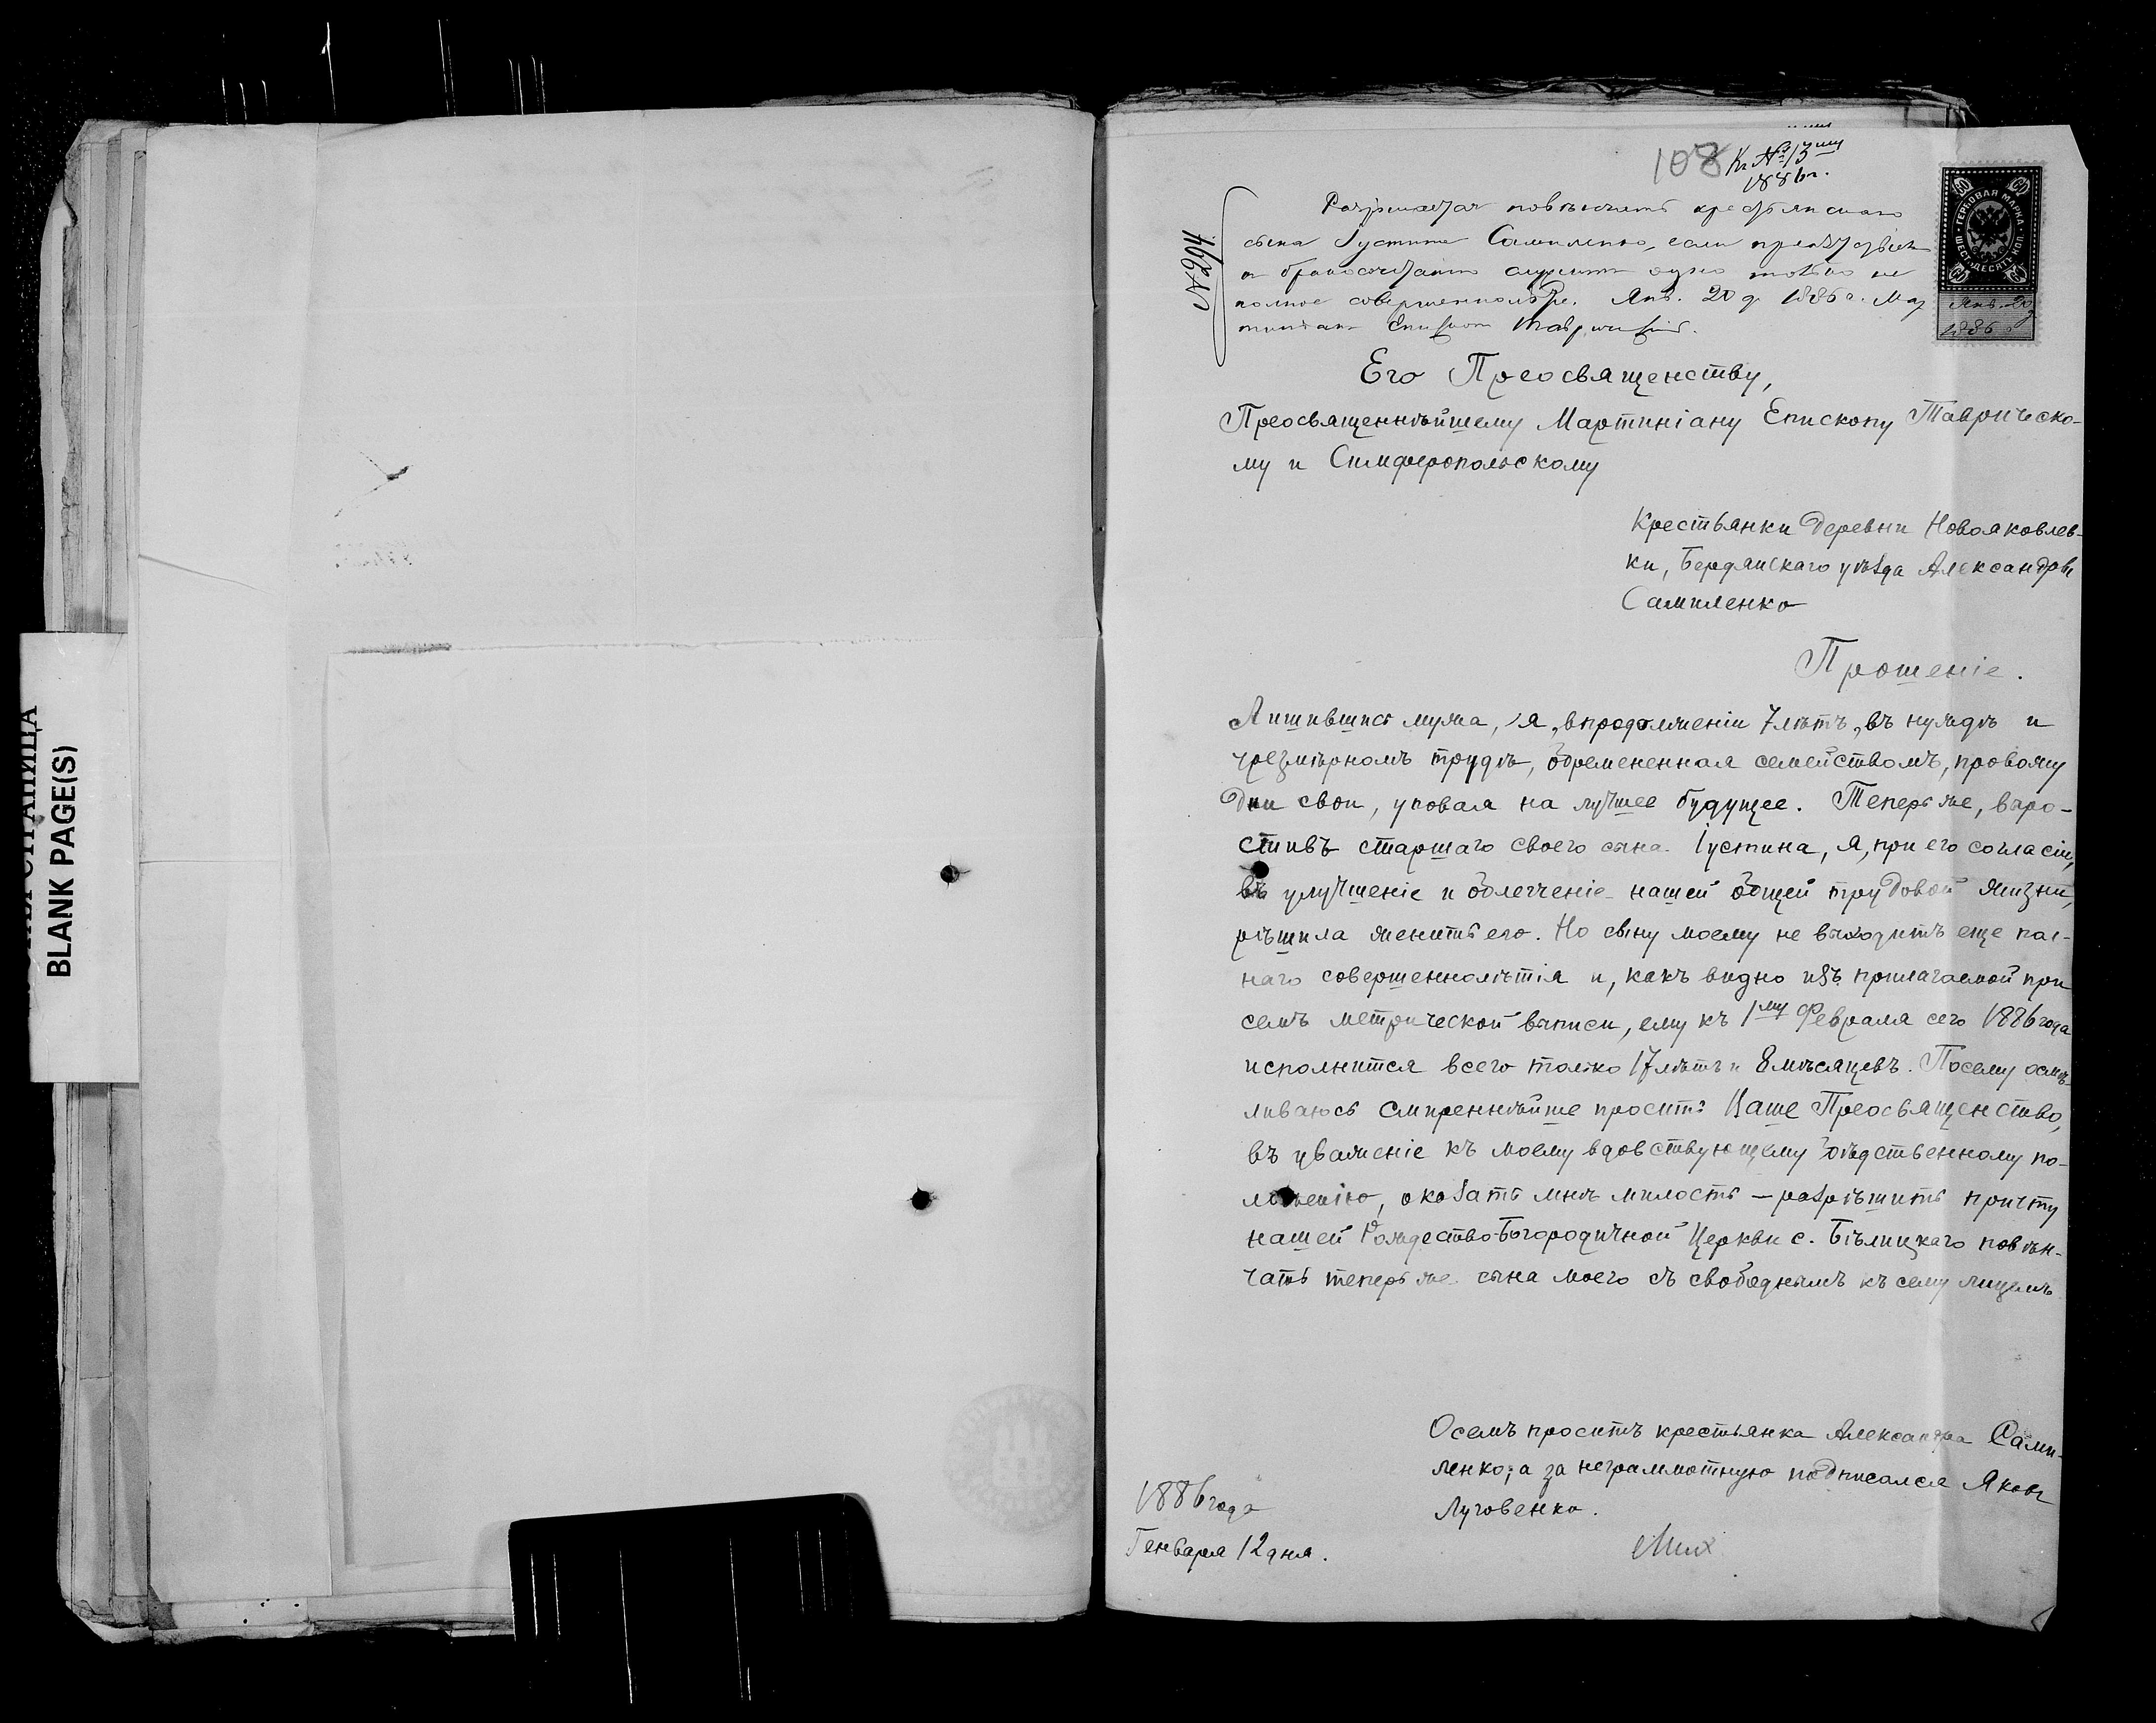 ПУСТАЯ СТРАНИЦА
BLANK PAGE(S)
108 Къ № 13му
1886 г.
№ 294.
Разрѣшается повѣнчать крестьянскаго
сына Іустина Самиленко, если препятствіемъ
къ бракосочетанію служитъ одно только не
полное совершеннолѣтіе. Янв. 20 д. 1886 г. Мар
тиніанъ Епископъ Таврическій.
ГЕРБОВАЯ МАРКА
ШЕСТЬДЕСЯТЪ КОП.
60 60 60 60
Янв. 20 д.
1886 г.
Его Преосвященству,
Преосвященнѣйшему Мартиніану Епископу Таврическо-
му и Симферопольскому
Крестьянки Деревни Новояковлев-
ки, Бердянскаго уѣзда Александры
Самиленко
Прошеніе.
Лишившись мужа, я, впродолженіи 7 лѣтъ, въ нуждѣ и
чрезмѣрномъ трудѣ, обремененная семействомъ, провожу
Дни свои, уповая на лучшее будущее. Теперь же, взро-
стивъ старшаго своего сына Іустина, я, при его согласіи,
въ улучшеніе и облегченіе нашей общей трудовой жизни,
рѣшила женить его. Но сыну моему не выходитъ еще пол-
наго совершеннолѣтія и, какъ видно изъ прилагаемой при
семъ метрической выписи, ему къ 1му Февраля сего 1886 года
исполнится всего только 17 лѣтъ и 8 мѣсяцевъ. Посему осмѣ-
ливаюсь смиреннѣйше просить Ваше Преосвященство,
въ уваженіе къ моему вдовствующему бѣдственному по-
ложенію, оказать мнѣ милость — разрѣшить причту
нашей Рождество-Богородичной Церкви с. Бѣлицкаго повѣн-
чать теперь же сына моего съ свободнымъ къ сему лицемъ
Осемъ проситъ крестьянка Александра Сами-
ленко; а за неграммотную подписался Яковъ
Луговенко.
1886 года
Генваря 12 дня.